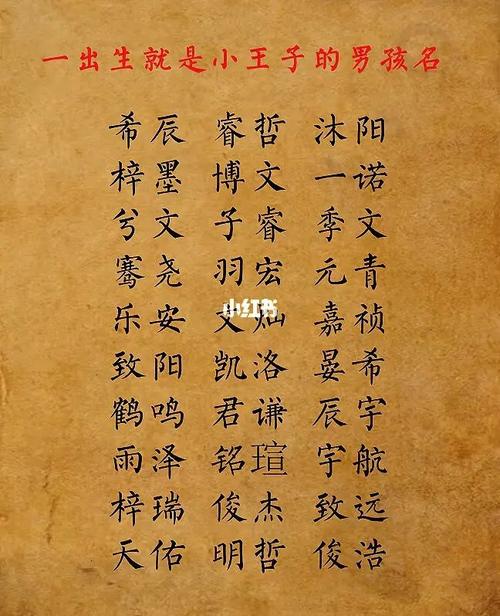 一出生就是小王子的男孩名
希辰 睿哲 沐阳
梓墨 博文 一诺
兮文 子睿 季文
骞尧 羽宏 元青
乐安 文灿 嘉祯
小红书
致阳 凯洛 晏希
鹤鸣 君谦 辰宇
雨泽 铭瑄 宇航
梓瑞 俊杰 致远
天佑 明哲 俊浩